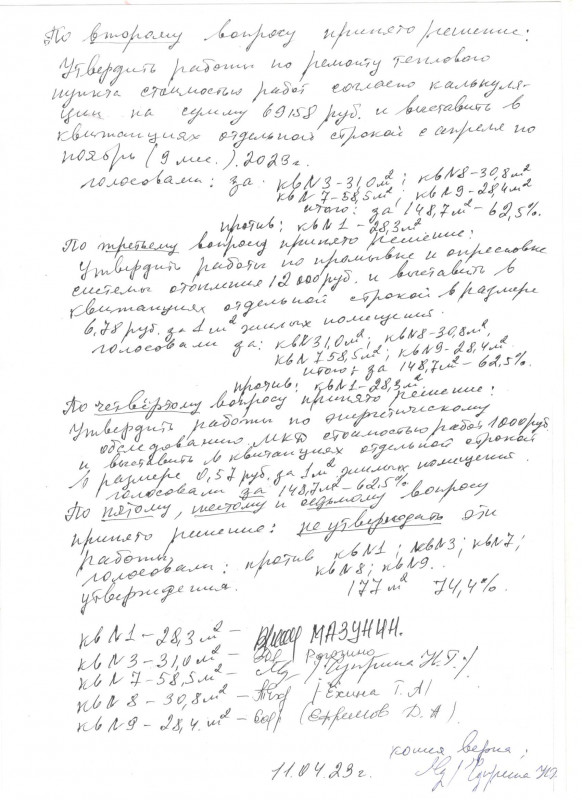 По второму вопросу принято решение:
Утвердить работы по ремонту теплового
пункта стоимостью работ согласно калькуля-
ции на сумму 69158 руб. и выставить в
квитанциях отдельной строкой с апреля по
ноябрь (9 мес.). 2023 г.
голосовали: за: кв N3-31,0 м²; кв N8-30,8 м²
кв N7-58,5 м²; кв N9-28,4 м²
итого: за 148,7 м² - 62,5%.
против: кв N1 - 28,3 м²
По третьему вопросу принято решение:
Утвердить работы по промывке и опрессовке
системы отопления 12000 руб. и выставить в
квитанциях отдельной строкой в размере
6,78 руб. за 1 м² жилых помещений.
голосовали за: кв 31,0 м², кв N8-30,8 м²,
кв N7 58,5 м²; кв N9-28,4 м².
итого: за 148,7 м² - 62,5%.
против: кв N1-28,3 м²
По четвёртому вопросу принято решение:
Утвердить работы по энергетическому
обследованию МКД стоимостью работ 1000 руб
и выставить в квитанциях отдельной строкой
в размере 0,57 руб. за 1 м² жилых помещений.
голосовали за 148,7 м² - 62,5%
По пятому, шестому и седьмому вопросу
принято решение: не утверждать эти
работы.
голосовали: против кв N1; кв N3; кв N7;
утверждения. кв N8; кв N9.
177 м² 74,4%.
кв N1 - 28,3 м² - МАЗУНИН.
кв N3 - 31,0 м² - Рогозина
кв N7 - 58,5 м² - / Чуприна Н.Г./
кв N8 - 30,8 м² - / Ёхина Т.А/
кв N9 - 28,4 м² - (Ефремов Д.А).
копия верна:
11.04.23 г. / Чуприна Н.Г.